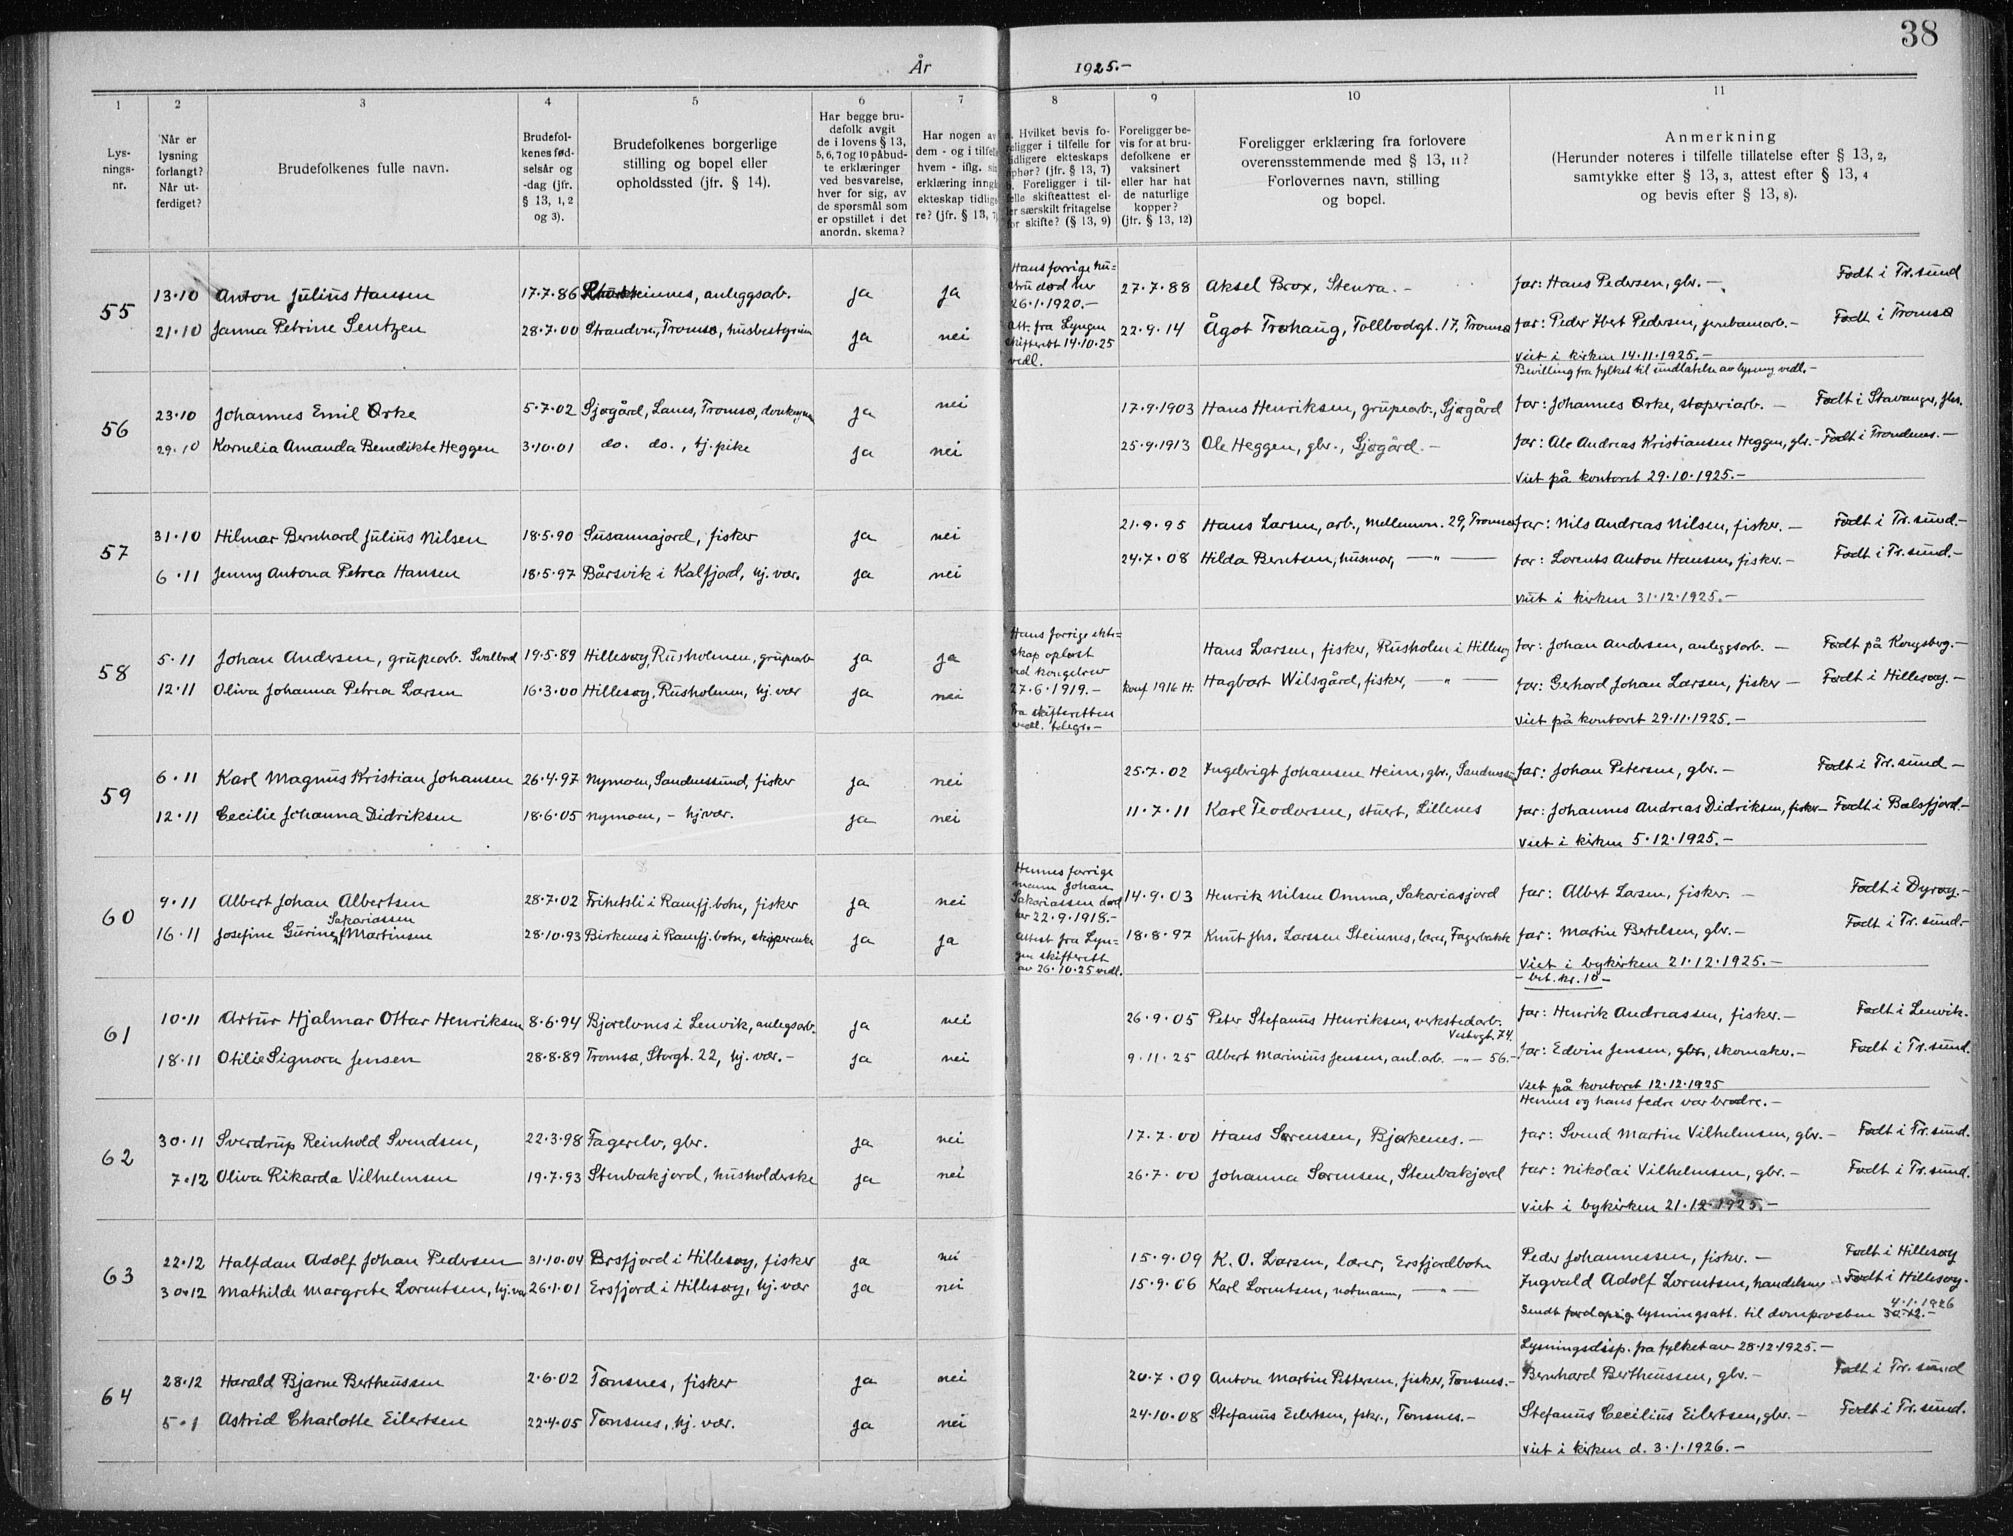 38
År 1925.-
1 2 3 4 5 6 7 8 9 10 11
Lys-
nings-
nr.
Når er
lysning
forlangt?
Når ut-
ferdiget?
Brudefolkenes fulle navn.
Brudefol-
kenes fød-
selsår og
-dag (jfr.
§ 13, 1, 2
og 3).
Brudefolkenes borgerlige
stilling og bopel eller
opholdssted (jfr. § 14).
Har begge bru-
defolk avgit
de i lovens § 13,
5, 6, 7 og 10 påbud-
te erklæringer
ved besvarelse,
hver for sig, av
de spørsmål som
er opstillet i det
anordn. skema?
Har nogen av
dem - og i tilfelle
hvem - iflg. sin
erklæring inngått
ekteskap tidlige-
re? (jfr. § 13, 7)
a. Hvilket bevis fo-
religger i tilfelle for
tidligere ekteskaps
ophør? (jfr. § 13, 7)
b. Foreligger i til-
felle skifteattest el-
ler særskilt fritagelse
for skifte? (§ 13, 9)
Foreligger be-
vis for at bru-
defolkene er
vaksinert
eller har hat
de naturlige
kopper?
(jfr. § 13, 12)
Foreligger erklæring fra forlovere
overensstemmende med § 13, 11?
Forlovernes navn, stilling
og bopel.
Anmerkning
(Herunder noteres i tilfelle tillatelse efter § 13, 2,
samtykke efter § 13, 3, attest efter § 13, 4
og bevis efter § 13, 8).
55
13.10 Anton Julius Hansen 17.7.86 anleggsarb. ja ja
Hans forrige hu=
stru død her
26.1.1920.-
27.7.88 Aksel Brox, Stenra. - far: Hans Pedersen, gbr. -. Født i Tr.sund
21.10 Janna Petrine Sentzen 28.7.00 Strandvn., Tromsø, husbestyrerin ja nei
Att. fra Lyngen
skifterett 14.10.25
vedl.
22.9.14 Ågot Trohaug, Tollbodgt. 17, Tromsø far: Peder Hbert Pedersen, jernbanearb.- Født i Tromsø
Viet i kirken 14.11.1925.-
Bevilling fra fylket til undlatelse av lysning vedl.-
56
23.10 Johannes Emil Ørke 5.7.02 Sjøgård, Lanes, Tromsø, ja nei 17.9.1903 Hans Henriksen, grupearb., Sjøgård far: Johannes Ørke, støperiarb. - Født i Stavanger, jfs.
29.10 Kornelia Amanda Benedikte Heggen 3.10.01 do. do., tj.pike ja nei 25.9.1913 Ole Heggen, gbr., Sjøgård. - far: Ole Andreas Kristiansen Heggen, gbr.- Født i Trondenes.-
Viet på kontoret 29.10.1925.-
57
31.10 Hilmar Bernhard Julius Nilsen 18.5.90 Susannajord, fisker ja nei 21.9.95 Hans Larsen, arb., Mellemvn. 29, Tromsø far: Nils Andreas Nilsen, fisker. - Født i Tr.sund.-
6.11 Jenny Antona Petrea Hansen 18.5.97 Bårsvik i Kalfjord, hj.vær. ja nei 24.7.08 Hilda Berntsen, husmor, —"— far: Lorents Anton Hansen, fisker. - Født i Tr.sund.-
Viet i kirken 31.12.1925.-
58
5.11 Johan Andersen, grupearb. Svalbard 19.5.89 Hillesøy, Rusholmen, grupearb ja ja
Hans forrige ekte=
skap opløst
ved kongebrev
27.6.1919.-
Hans Larsen, fisker, Rusholm i Hillesøy far: Johan Andersen, anleggsarb. - Født på Kongsberg.-
12.11 Oliva Johanna Petrea Larsen 16.3.00 Hillesøy, Rusholmen, hj.vær ja nei
Fra skifteretten
vedl. telegr.-
konf 1916 H. Hagbart Wilsgård, fisker, —"— far: Gerhard Johan Larsen, fisker - Født i Hillesøy.-
Viet på kontoret 29.11.1925.-
59
6.11 Karl Magnus Kristian Johansen 26.4.97 Nymoen, Sandnessund, fisker ja nei 25.7.02 Ingebrigt Johansen Heim, gbr., Sandnessund far: Johan Petersen, gbr. - Født i Tr.sund -
12.11 Cecilie Johanna Didriksen 18.6.05 Nymoen, - hjvær. ja nei 11.7.11 Karl Teodorsen, stuert, Lillenes far: Johannes Andreas Didriksen, fisker- Født i Balsfjord.-
Viet i kirken 5.12.1925.-
60
9.11 Albert Johan Albertsen 28.7.02 Frihetsli i Ramfj.botn, fisker ja nei
Hennes forrige
mann Johan
Sakariassen død
her 22.9.1918.-
14.9.03 Henrik Nilsen Omma, Sakariasjord far: Albert Larsen, fisker. - Født i Dyrøy.-
Sakariassen
16.11 Josefine Gurine f. Martinsen 28.10.93 Birkenes i Ramfj.botn, skipperenke ja ja
Attest fra Lyn=
gen skifterett
av 26.10.25 vedl.
18.8.97 Knut Jhs. Larssen Steinnes, lærer, Fagerbakke far: Martin Bertelsen, gbr. - Født i Tr.sund.-
Viet i bykirken 21.12.1925.-
- bet. kr. 10 -
61
10.11 Artur Hjalmar Ottar Henriksen 8.6.94 Bjorelvnes i Lenvik, anlegsarb. ja nei 26.9.05 Peter Stefanus Henriksen, verkstedarb. Vestregt. 74. far: Henrik Andreassen, fisker.- Født i Lenvik.
18.11 Otilie Signora Jensen 28.8.89 Tromsø, Storgt. 22, hj. vær. - ja nei 9.11.25 Albert Marinius Jensen, anl.arb. —"— 56.- far: Edvin Jensen, gbr., skomaker.- Født i Tr.sund.
Viet på kontoret 12.12.1925
Hennes og hans fedre var brødre.-
62
30.11 Sverdrup Reinhold Svendsen, 22.3.98 Fagerelv, gbr. ja nei 17.7.00 Hans Sørensen, Bjørkenes. - far: Svend Martin Vilhelmsen, gbr. - Født i Tr.sund.
7.12 Oliva Rikarda Vilhelmsen 19.7.93 Stenbakjord, husholderske ja nei 26.7.00 Johanna Sørensen, Stenbakjord far: Nikolai Vilhelmsen, gbr. - Født i Tr.sund.
Viet i bykirken 21.12.1925.-
63
22.12 Halfdan Adolf Johan Pedersen 31.10.04 Ersfjord i Hillesøy, fisker ja nei 15.9.09 K. O. Larsen, lærer, Ersfjordbotn Peder Johannessen, fisker. - Født i Hillesøy
30.12 Mathilde Margrete Lorentsen, hj.vær 26.1.01 Ersfjord i Hillesøy, hj. vær ja nei 15.9.06 Karl Lorentsen, notmann, —"— Ingvald Adolf Lorentsen, handelsm. Født i Hillesøy.
Sendt lysningsatt. til domprosten 30.12.- 4.1.1926
64
Lysningsdisp. fra fylket av 28.12.1925.-
28.12 Harald Bjarne Bertheussen 2.6.02 Tønsnes, fisker ja nei 20.7.09 Anton Martin Pettersen, fisker, Tønsnes.- Bernhard Bertheussen, gbr. - Født i Tr. sund
5.1 Astrid Charlotte Eilertsen 22.4.05 Tønsnes, hj. vær. ja nei 24.10.08 Stefanus Eilertsen, fskr., Tønsnes. - Stefanus Cecilius Eilertsen, gbr. - Født i Tr.sund.
Viet i kirken d. 3.1.1926.-